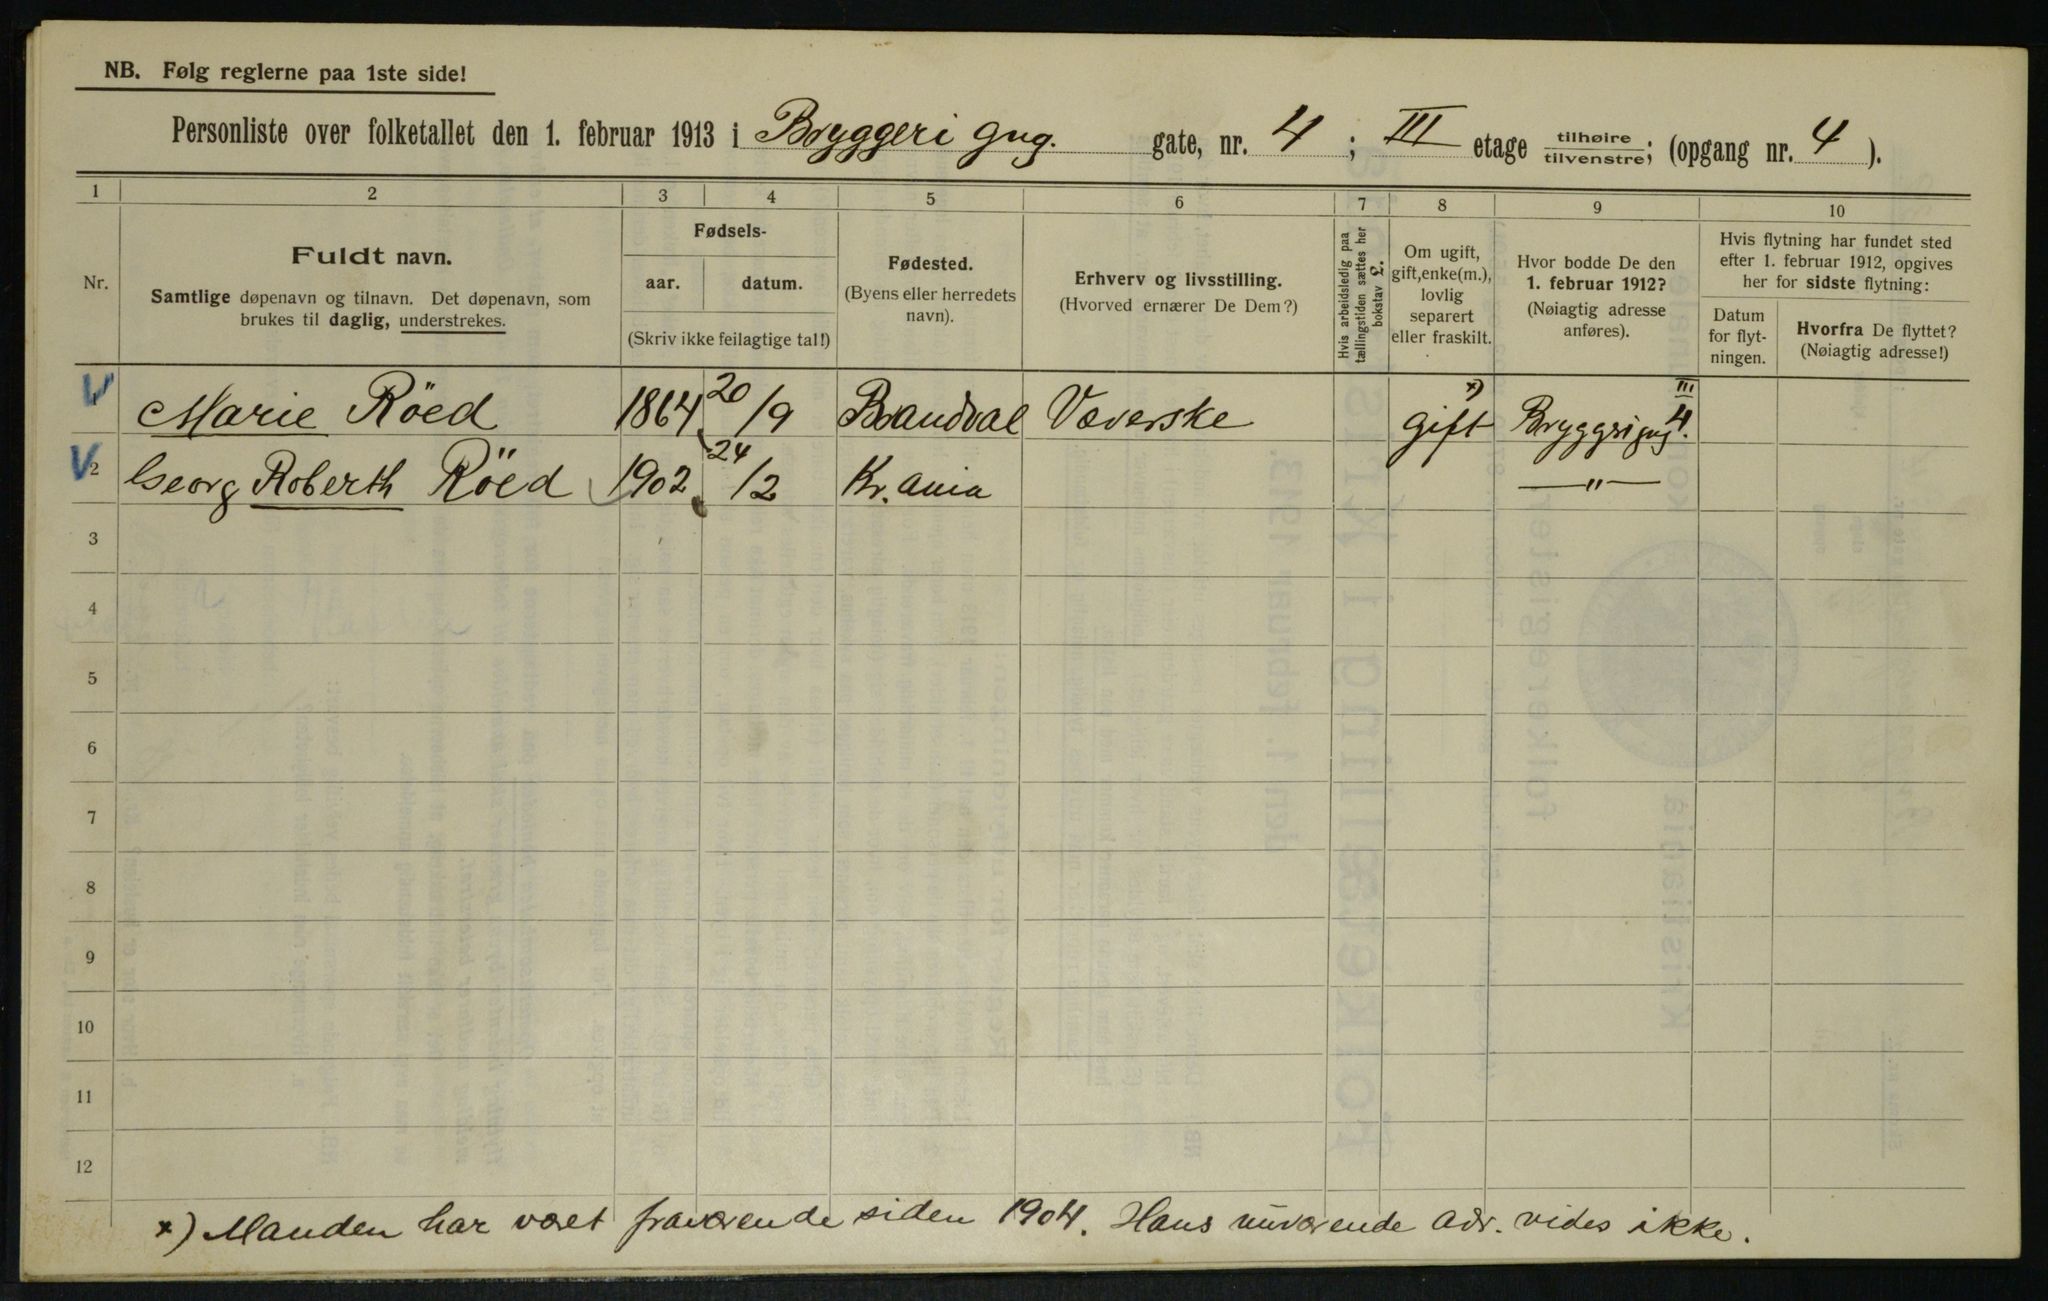 NB. Følg reglerne paa 1ste side!
Personliste over folketallet den 1. februar 1913 i Bryggeri gng. gate, nr. 4 ; III etage tilhøire tilvenstre; (opgang nr. 4 ).
1 2 3 4 5 6 7 8 9 10
Nr.
Fuldt navn.
Samtlige døpenavn og tilnavn. Det døpenavn, som
brukes til daglig, understrekes.
Fødsels-
aar. datum.
(Skriv ikke feilagtige tal!)
Fødested.
(Byens eller herredets
navn).
Erhverv og livsstilling.
(Hvorved ernærer De Dem?)
Hvis arbeidsledig paa
tællingstiden sættes her
bokstav £.
Om ugift,
gift, enke(m.),
lovlig
separert
eller fraskilt.
Hvor bodde De den
1. februar 1912?
(Nøiagtig adresse
anføres).
Hvis flytning har fundet sted
efter 1. februar 1912, opgives
her for sidste flytning:
Datum
for flyt-
ningen.
Hvorfra De flyttet?
(Nøiagtig adresse!)
1 Marie Röed 1864 20/9 Brandval Væverske x) gift Bryggrigng 4. III
2 Georg Roberth Röed 1902 24/2 Kr.ania —"—
3
4
5
6
7
8
9
10
11
12
x) Manden har været fraværende siden 1904. Hans nuværende adr. vides ikke.